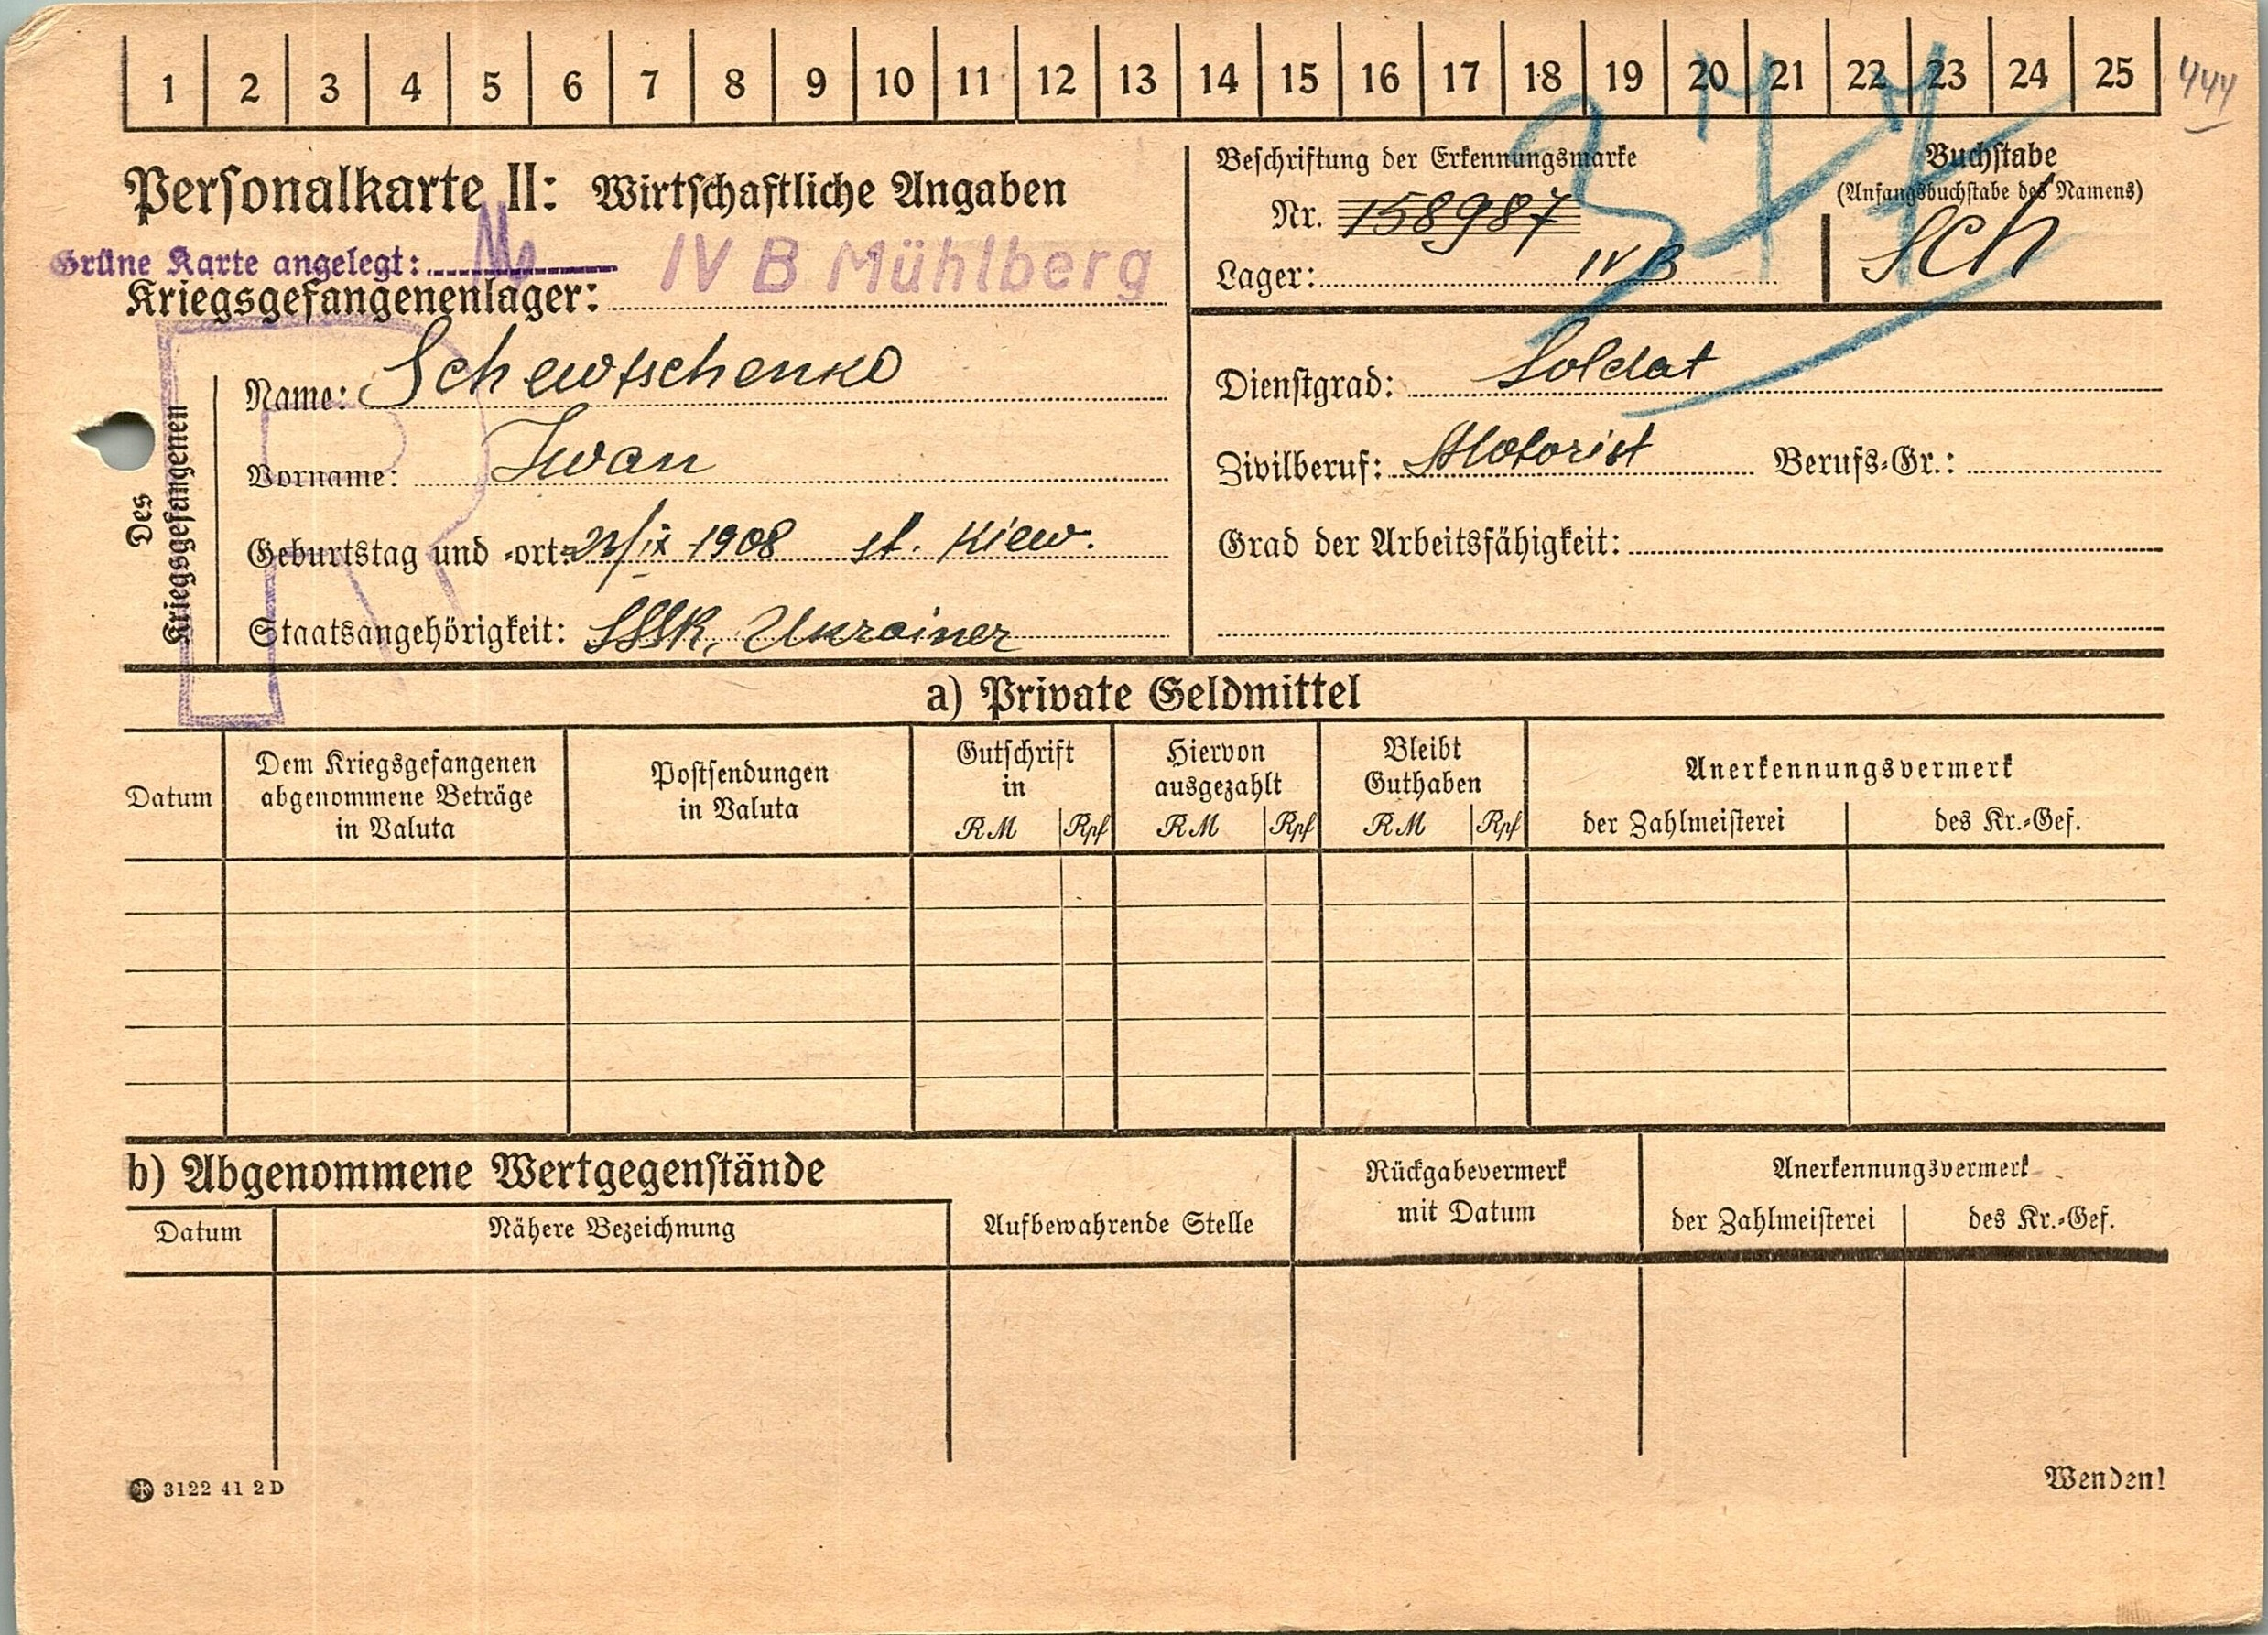 1 2 3 4 5 6 7 8 9 10 11 12 13 14 15 16 17 18 19 20 21 22 23 24 25 444
Personalkarte II: Wirtschaftliche Angaben
Grüne Karte angelegt:
Kriegsgefangenenlager: IV B Mühlberg
Beschriftung der Erkennungsmarke
Nr. 158987
Lager: IV B
Buchstabe
(Anfangsbuchstabe des Namens)
Sch
Des
Kriegsgefangenen
Name: Schewtschenko
Vorname: Iwan
Geburtstag und -ort: /IX 1908 st. Kiew.
Staatsangehörigkeit: SSSR, Ukrainer
Dienstgrad: Soldat
Zivilberuf: Motorist Berufs-Gr.:
Grad der Arbeitsfähigkeit:
R
a) Private Geldmittel
Datum
Dem Kriegsgefangenen
abgenommene Beträge
in Valuta
Postsendungen
in Valuta
Gutschrift
in
RM Rpf
Hiervon
ausgezahlt
RM Rpf
Bleibt
Guthaben
RM Rpf
Anerkennungsvermerk
der Zahlmeisterei des Kr.-Gef.
b) Abgenommene Wertgegenstände
Datum
Nähere Bezeichnung
Aufbewahrende Stelle
Rückgabevermerk
mit Datum
Anerkennungsvermerk
der Zahlmeisterei des Kr.-Gef.
3122 41 2D
Wenden!